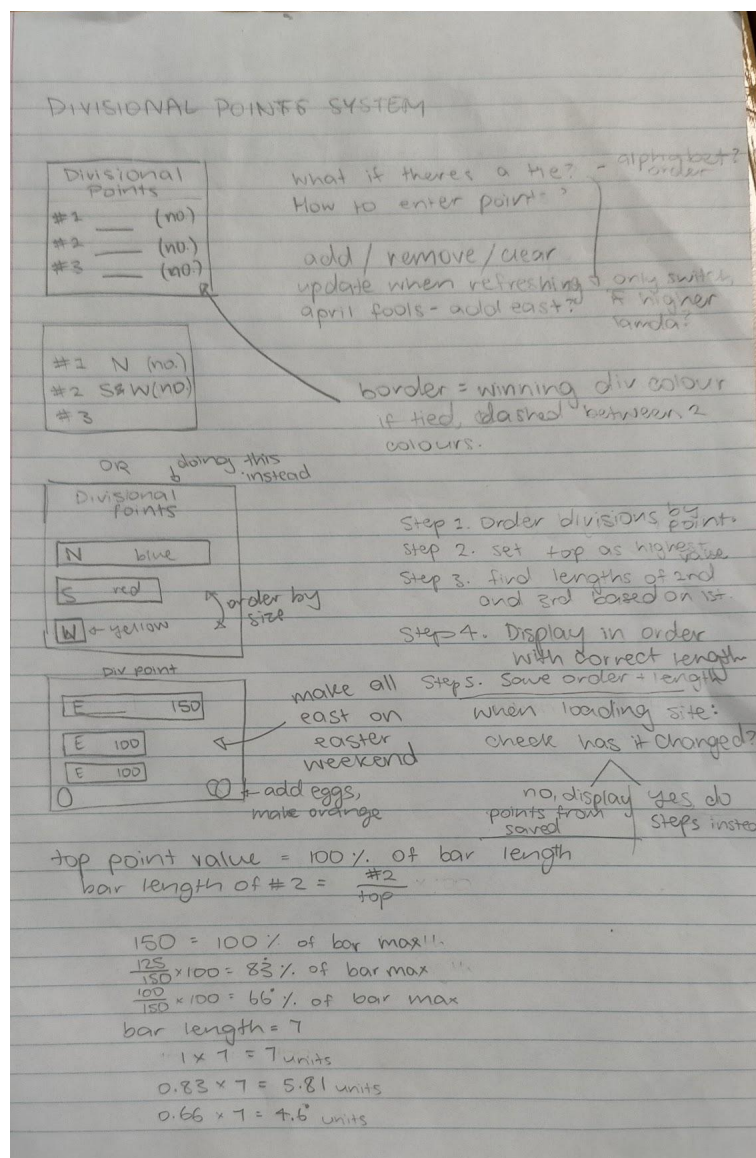 DIVISIONAL POINTS SYSTEM
Divisional
Points
#1 ___ (no)
#2 ___ (no.)
#3 ___ (no.)
what if theres a tie? - alphabet?
order
How to enter points?
add / remove / clear
update when refreshing
april fools - add east?
only switch
if higher
lamda?
#1 N (no.)
#2 S&W (no)
#3
border = winning div colour
if tied, dashed between 2
colours.
OR
doing this
instead
Divisional
points
N blue
S red
W ← yellow
order by
size
Step 1. Order divisions by
point.
Step 2. set top as highest
value
Step 3. find lengths of 2nd
and 3rd based on 1st.
Step 4. Display in order
with correct length
Step 5. Save order + length
Div point
E 150
E 100
E 100
make all
east on
easter
weekend
← add eggs,
make orange
when loading site:
check has it changed?
no, display
points from
saved
yes, do
steps instead
top point value = 100 % of bar length
bar length of #2 = #2
top
150 = 100 % of bar max
125/150 × 100 = 83̇ % of bar max
100/150 × 100 = 66̇ % of bar max
bar length = 7
1 × 7 = 7 units
0.83 × 7 = 5.81 units
0.66 × 7 = 4.6̇ units